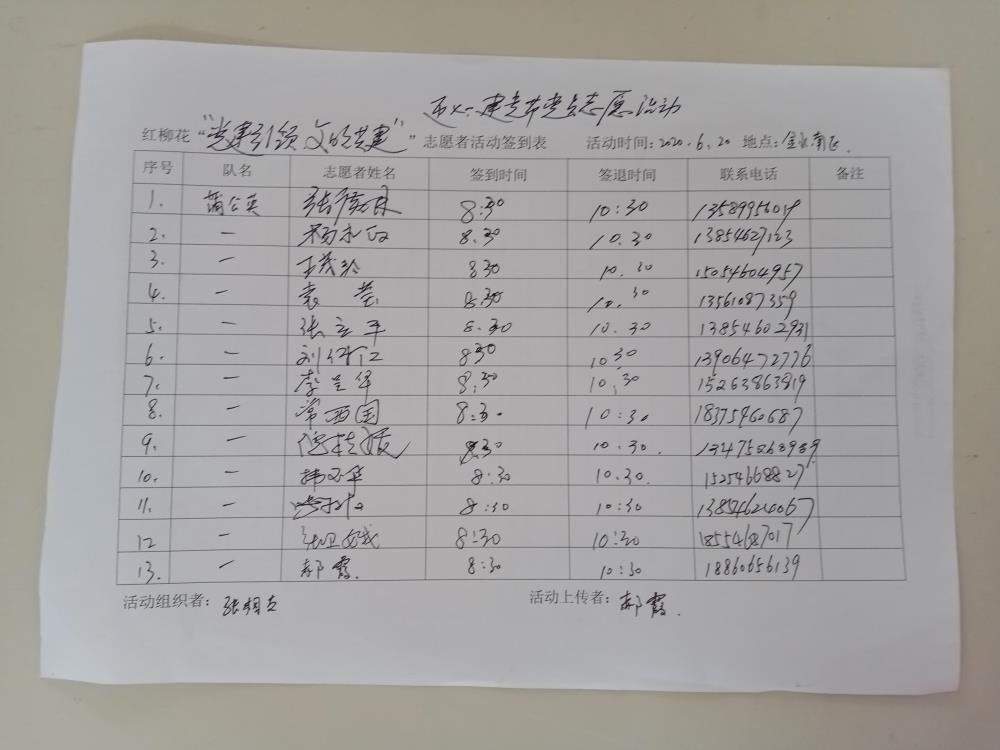 迎七一建党节党员志愿活动
红柳花“党建引领 文明共建”志愿者活动签到表 活动时间:2020.6.20 地点:金水南区.
序号 队名 志愿者姓名 签到时间 签退时间 联系电话 备注
1. 蒲公英 8:30 10:30
2. 一 8.30 10.30 13854627123
3. 一 8 30 10.30 15054604957
4. 一 袁 8.30 10.30 13561087359
5. 一 张立平 8.30 10.30 13854602931
6. 一 8 30 10 30 13906472776
7. 一 李呈华 8.30 10.30 15263863819
8. 一 常西国 8:30 10:30 18375460687
9. 一 8:30 10.30. 13475268989
10. 一 8:30 10.30. 15254668827
11. 一 8:30 10:30 13854624067
12 一 8:30 10:30 18554687017
13. 一 郝霞. 8:30 10:30 18860656139
活动组织者: 活动上传者: 郝霞.